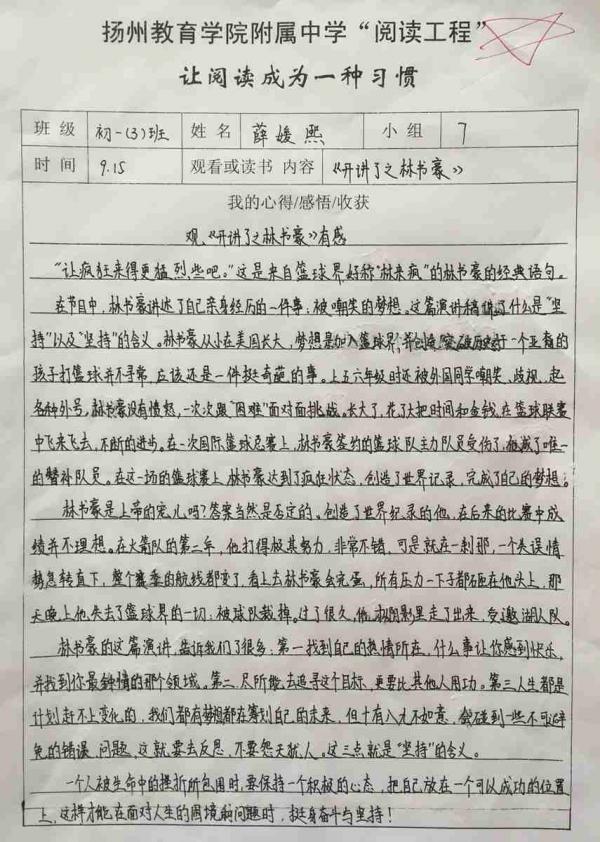 扬州教育学院附属中学“阅读工程”
让阅读成为一种习惯
班 级 初一(3)班 姓 名 薛媛熙 小 组 7
时 间 9.15 观看或读书 内容 《开讲了之林书豪》
我的心得/感悟/收获
观《开讲了之林书豪》有感
“让疯狂来得更猛烈些吧。”这是来自篮球界,好称“林来疯”的林书豪的经典语句。
在节目中,林书豪讲述了自己亲身经历的一件事:被嘲笑的梦想。这篇演讲稿 了什么是“坚
持”以及“坚持”的含义。林书豪从小在美国长大,梦想是加入篮球界,并创造 一个亚裔的
孩子打篮球并不寻常,应该还是一件挺奇葩的事。上五六年级时还被外国同学嘲笑、歧视、起
各种外号,林书豪没有愤怒,一次次跟“困难”面对面挑战。长大了,花了大把时间和金钱,在篮球联赛
中飞来飞去,不断的进步。在一次国际篮球总赛上,林书豪签约的篮球队主力队员受伤了,他成了唯一
的替补队员。在这一场的篮球赛上,林书豪达到了疯狂状态,创造了世界记录,完成了自己的梦想。
林书豪是上帝的宠儿吗?答案当然是否定的。创造了世界纪录的他,在后来的比赛中成
绩并不理想。在火箭队的第二年,他打得极其努力,非常不错,可是就在一刹那,一个失误情
势急转直下,整个赛季的航线都变了,看上去林书豪会完蛋,所有压力一下子都砸在他头上,那
天晚上他失去了篮球界的一切,被球队裁掉。过了很久,他 从阴影里走了出来,受邀湖人队。
林书豪的这篇演讲,告诉我们了很多:第一找到自己的热情所在,什么事让你感到快乐,
并找到你最钟情的那个领域。第二,尽所能去追寻这个目标,更要比其他人用功。第三人生都是
计划赶不上变化的,我们都有梦想都在筹划自己的未来,但十有八九不如意,会碰到一些不可避
免的错误、问题,这就要去反思,不要怨天犹人。这三点就是“坚持”的含义。
一个人被生命中的挫折所包围时,要保持一个积极的心态,把自己放在一个可以成功的位置
上,这样才能在面对人生的困境和问题时,挺身奋斗与坚持!